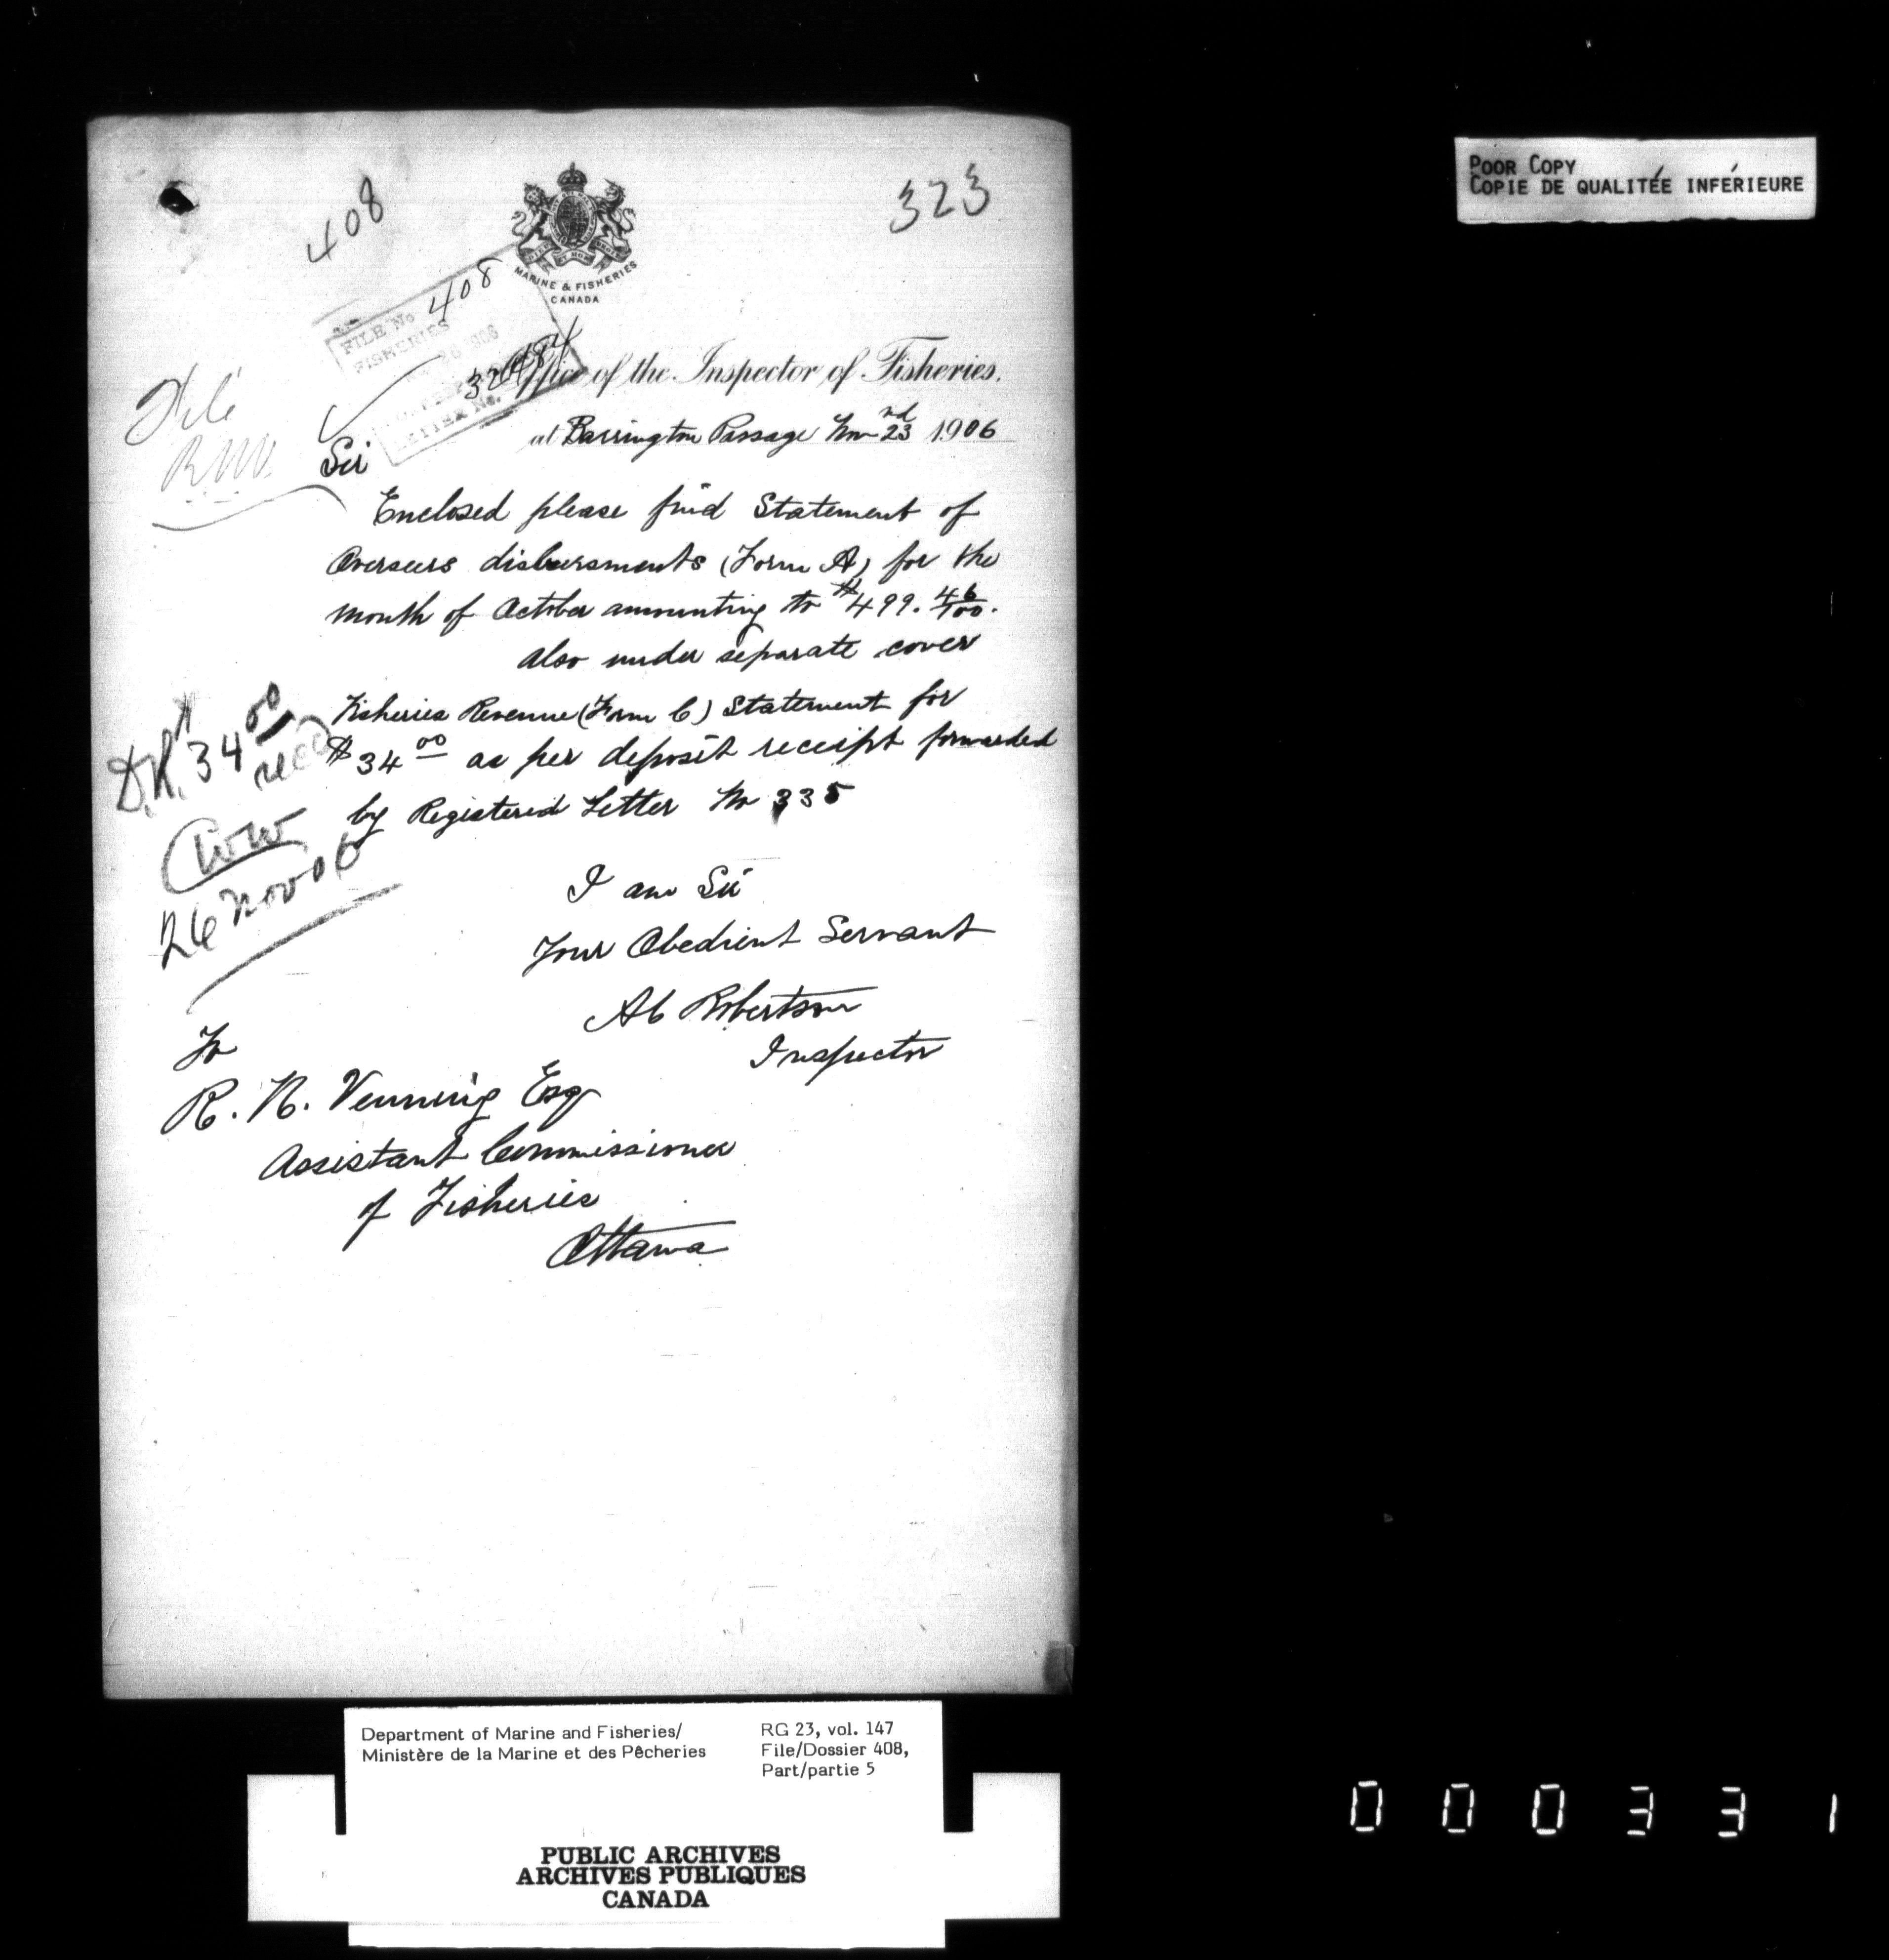 POOR COPY
COPIE DE QUALITÉE INFÉRIEURE
408
323
MARINE & FISHERIES
CANADA
FILE No 408
FISHERIES
26 1906
LETTER No.
Office of the Inspector of Fisheries.
at Barrington Passage Nov 23rd 1906
File
Sir
Enclosed please find Statement of
Overseers disbursments (Form A) for the
month of October amounting to $499.46/100.
also under separate cover
Fisheries Revenue (Form C) Statement for
$34 00 as per deposit receipt forwarded
by Registered Letter No 335
D.R. $34 00
recd
26 Nov 06
I am Sir
Your Obedient Servant
A C Robertson
Inspector
To
R. N. Venning Esq
Assistant Commissioner
of Fisheries
Ottawa
Department of Marine and Fisheries/
Ministère de la Marine et des Pêcheries
RG 23, vol. 147
File/Dossier 408,
Part/partie 5
PUBLIC ARCHIVES
ARCHIVES PUBLIQUES
CANADA
000331